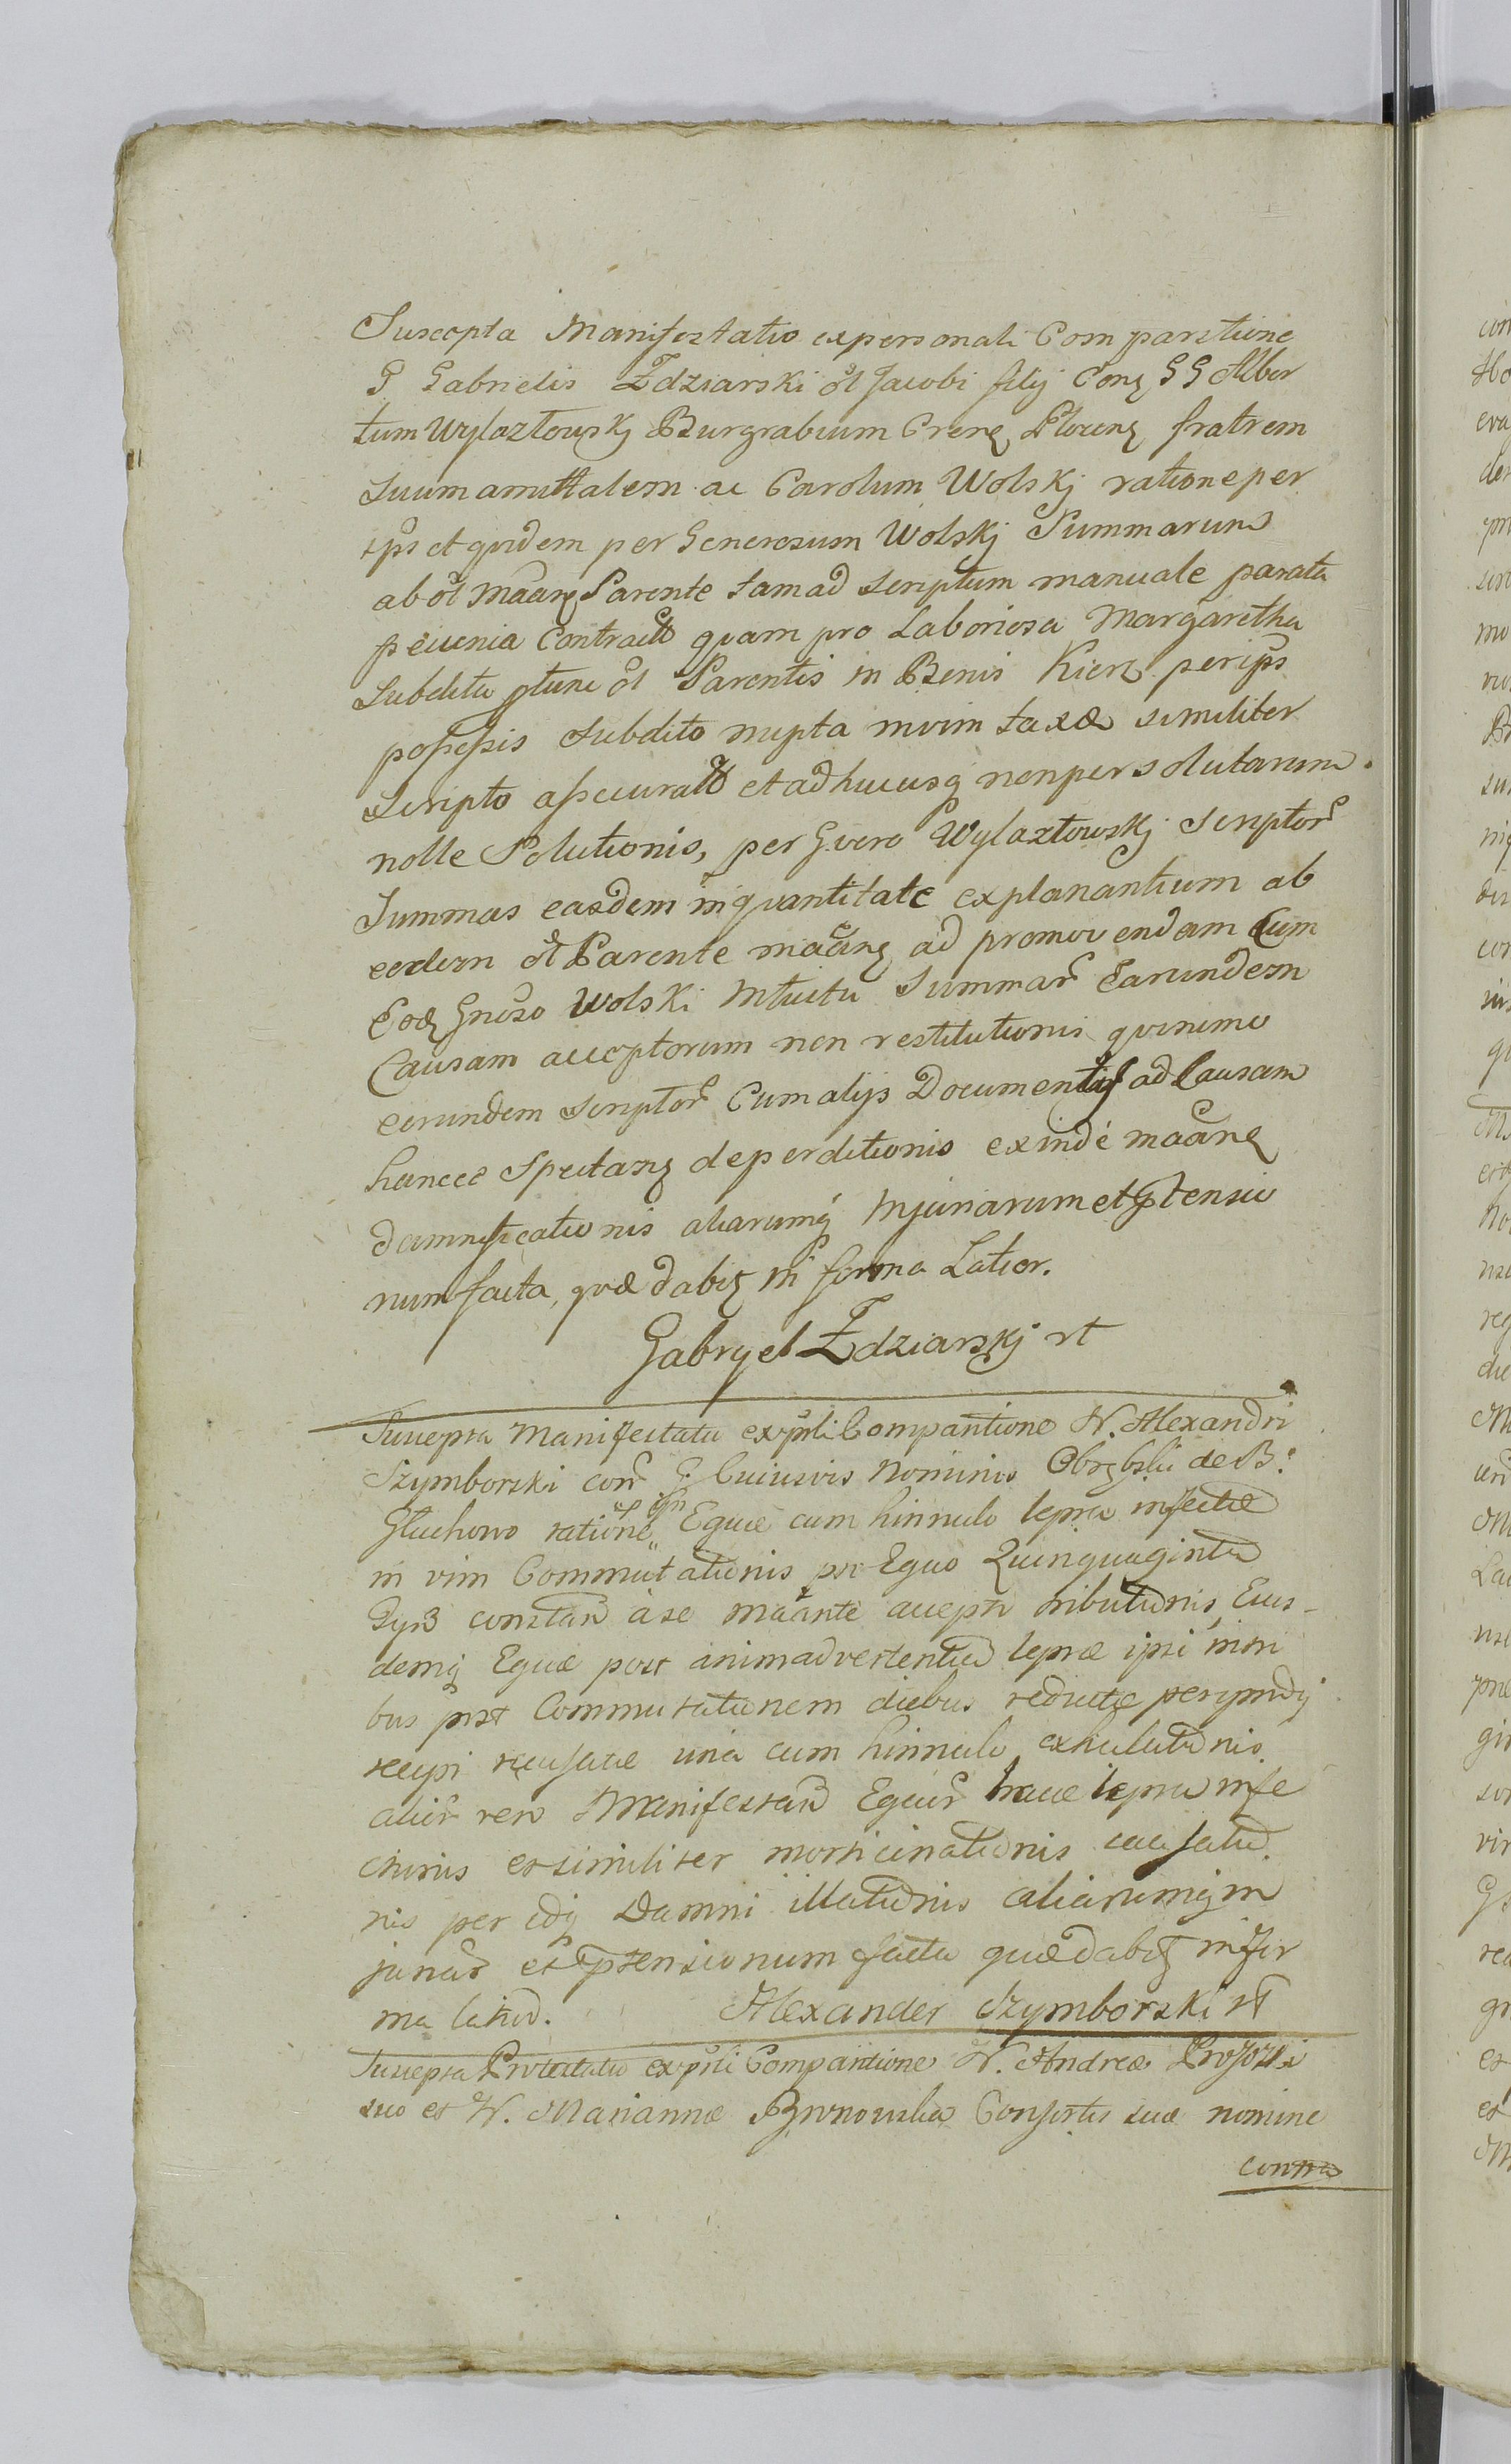 Suscepta Manifestatio ex personali Comparitione
G Gabrielis Zdziarski ol Jacobi filij Conz GG Alber
tum Wylaztowskj Burgrabium Crenz Plocenz fratrem
Suum amittalem ac Carolum Wolskj ratione per
ips et quidem per Generosum Wolskj Summarum
ab ol Maanz Parente tam ad Scriptum manuale parata
pecunia Contract quam pro Laboriosa Margaretha
Subdita ptunc ol Parentis in Bonis Kierz per ips
possessis Subdito nupta in vim taxæ similiter
Scripto assecurat et adhucusq non persolutarum
nolle Solutionis, per G vero Wylaztowskj Scriptor
Summas easdem in quantitate explanantium ab
eodem ol Parente maanz ad promovendam Cum
Eod Gnoso Wolski Intuitu Summar Earundem
Causam acceptorum non restitutionis quinimo
eorundem Scriptor Cum alijs Documentis ad Causam
hancce Spectanz deperditionis exinde maanz
damnificationis aliarumq Injuriarum et Ptensio
num facta, quæ dabiz in forma Latior.
Gabryel Zdziarskj rt
Suscepta Manifestatio ex prli Comparitione N. Alexandri
Szymborski con G. Cuiusvis Nominis Obrębski de B.
Głuchowo ratione Equæ cum hinnulo lepra infectæ
in vim Commutationis pr Equo Quinquaginta
Tynf constan a se maante accepto tributionis, Eius-
demq Equæ post animadvertentia lepræ ipsi
bus post Commutationem diebus reductæ per
recipi recusatæ una cum hinnulo
alior vero Manifestan Equor hacce lepra infe
ctionis et similiter morticinationis causatio
nis per Damni illationis aliarumq in
juriar et Ptensionum facta quæ dabiz in for
ma latior. Alexander Szymborski rt
Suscepta Protestatio ex prli Comparitione N. Andreæ
suo et N. Mariannæ Consortis suæ nomine
contra